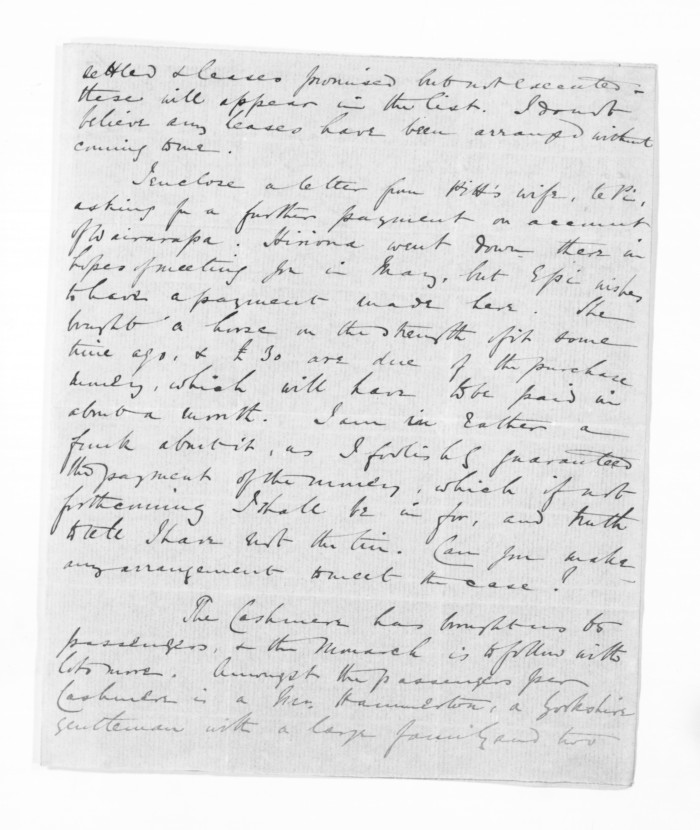 settled & leases promised but not executed -
these will appear in the list. I do not
believe any leases have been arranged without
coming to me.
I enclose a letter from wife, te Pi,
asking for a further payment on account
of Wairarapa. Hiriona went down there in
hopes of meeting you in May, but Epi wishes
to have a payment made here. She
bought a horse on the strength of it some
time ago, & £30 are due of the purchase
money, which will have to be paid in
about a month. I am in rather a
funk about it, as I foolishly guaranteed
the payment of the money, which if not
forthcoming I shall be in for, and truth
to tell I have not the tin. Can you make
any arrangement to meet the case?
The Cashmere has brought us 60
passengers, & the Monarch is to follow with
lots more. Amongst the passengers per
Cashmere is a Mr. Hammerton, a Yorkshire
gentleman with a large family and two